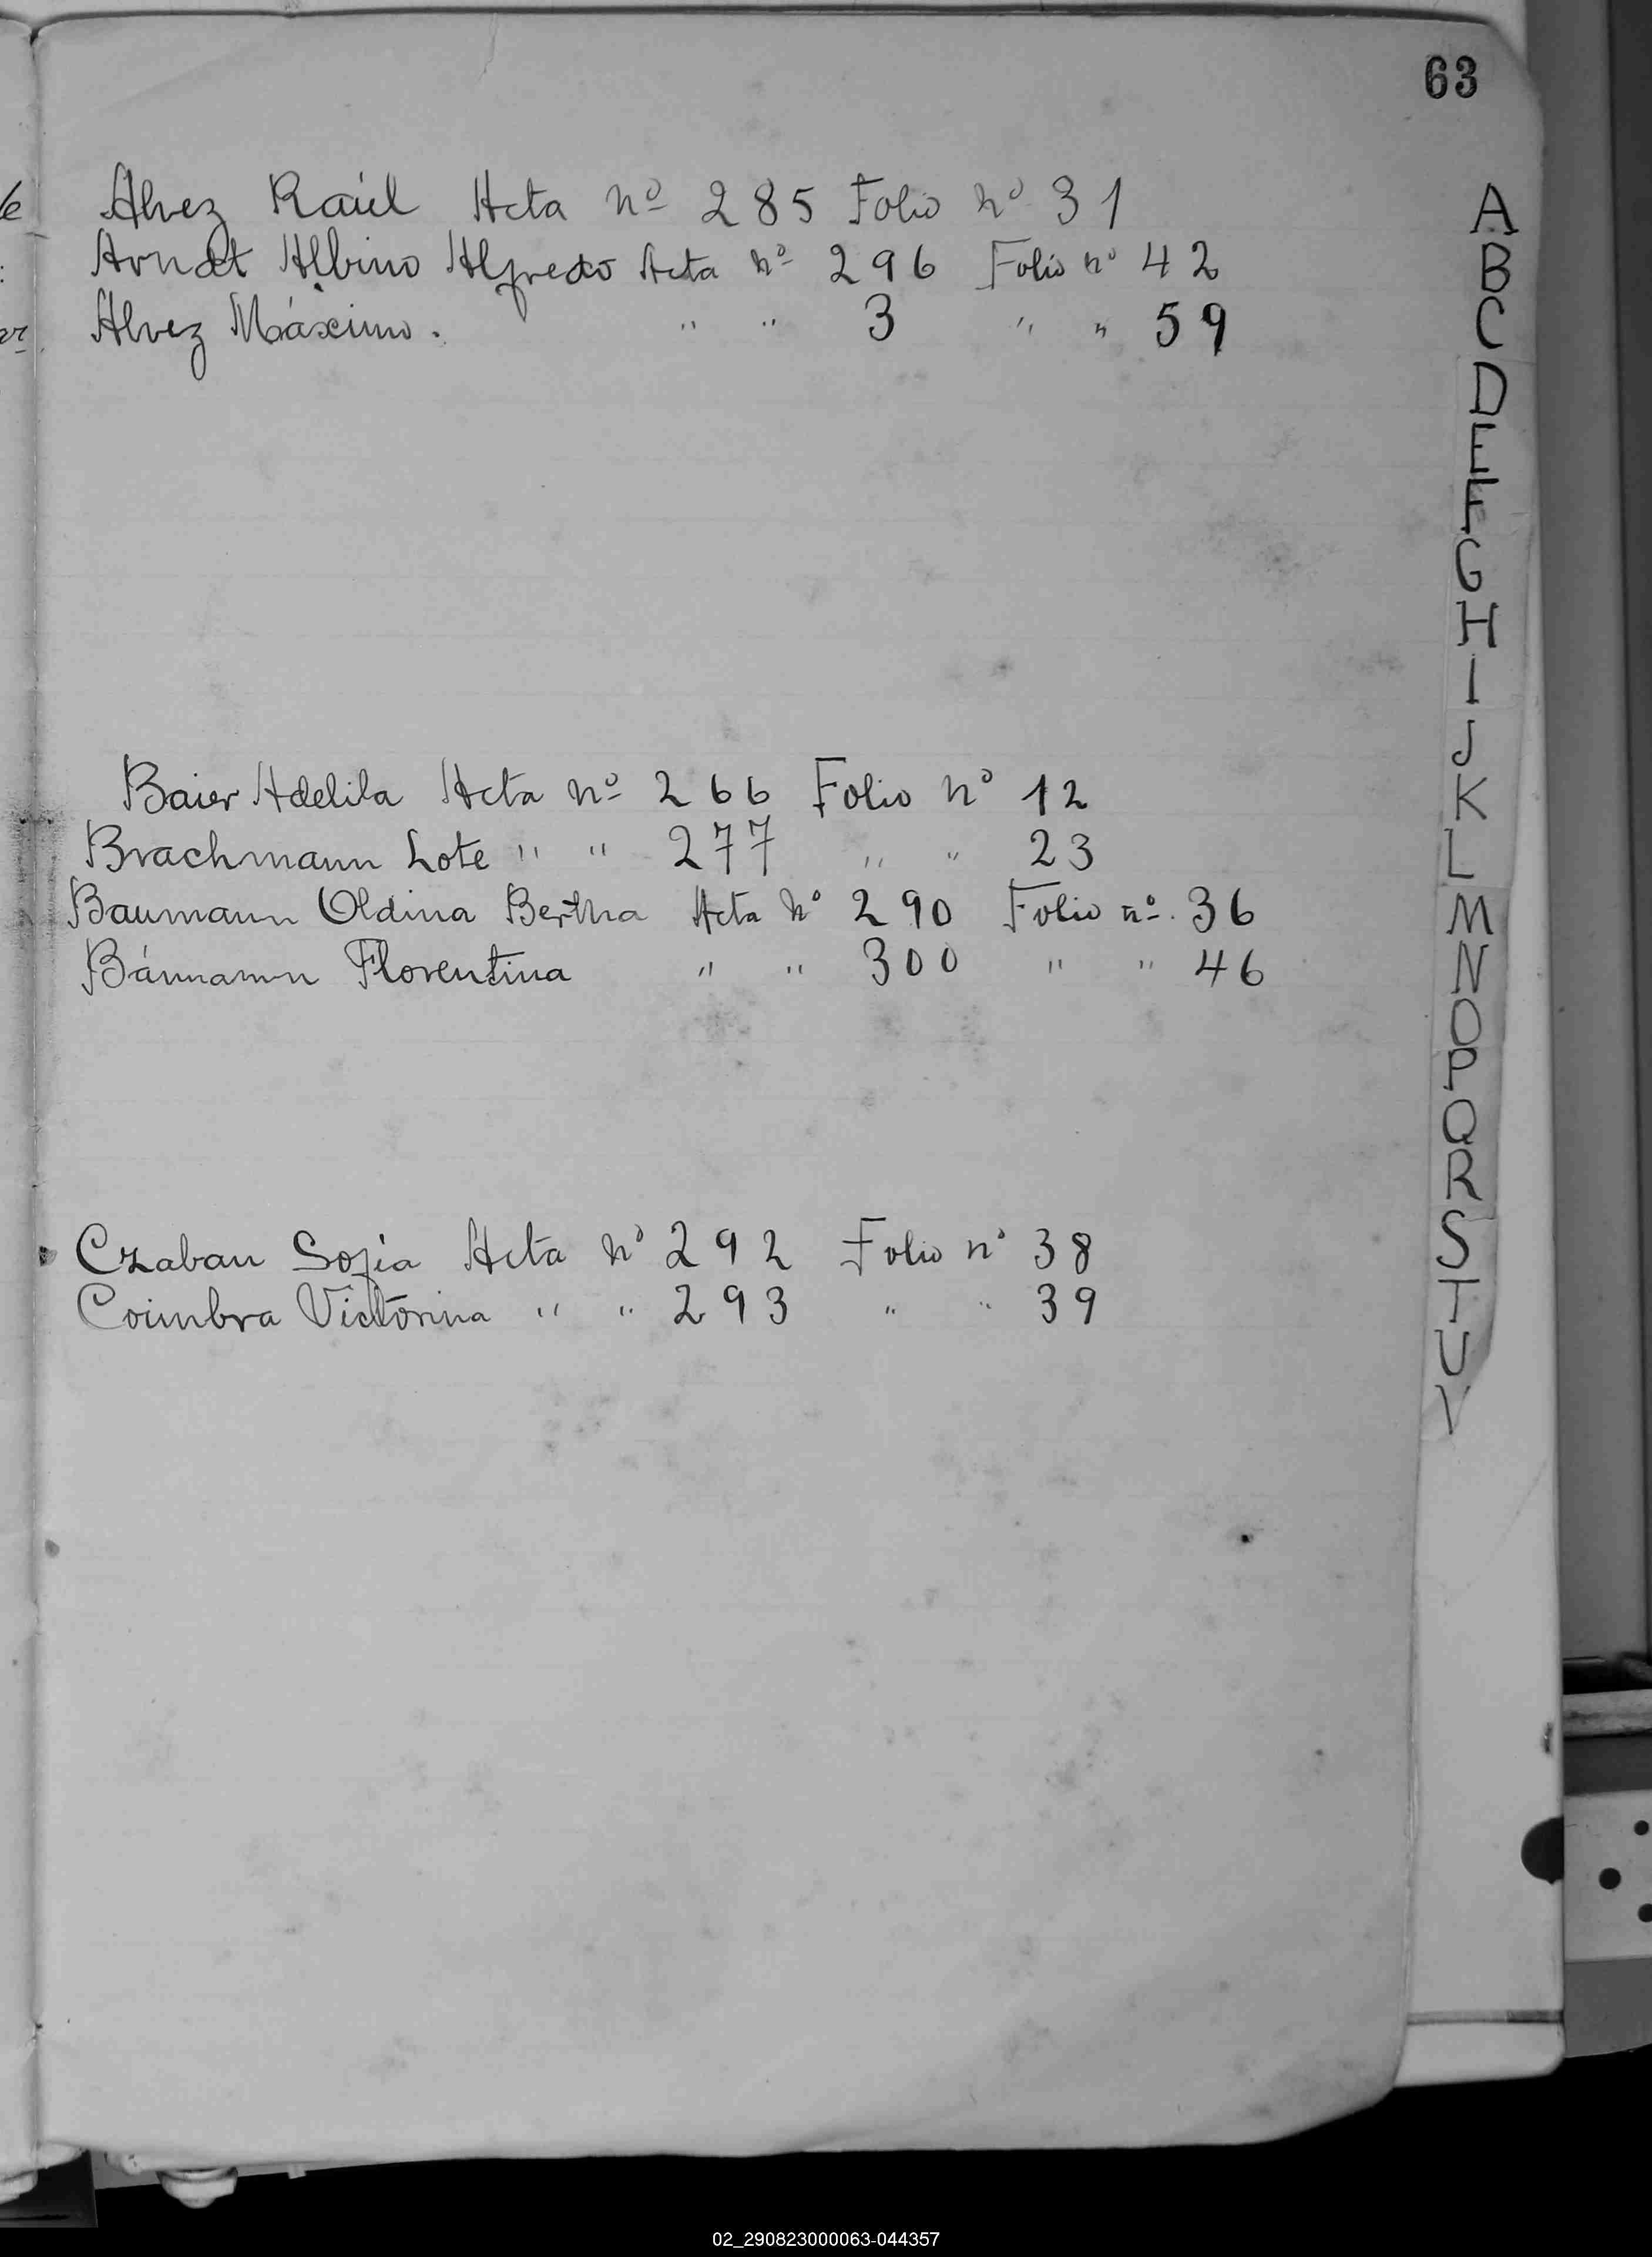 63
Alvez Raúl Acta nº 285 Folio nº 31
Arndt Albino Alfredo Acta nº 296 Folio nº 42
Alvez Máximo. " " 3 " " 59
Baier Adelila Acta nº 266 Folio nº 12
Brachmann Lote " " 277 " " 23
Baumann Oldina Bertha Acta Nº 290 Folio nº. 36
Bánmann Florentina " " 300 " " 46
Czaban Sofia Acta nº 292 Folio nº 38
Coimbra Victorina " " 293 " " 39
A
B
C
D
E
F
G
H
I
J
K
L
M
N
O
P
Q
R
S
T
U
V
02_290823000063-044357